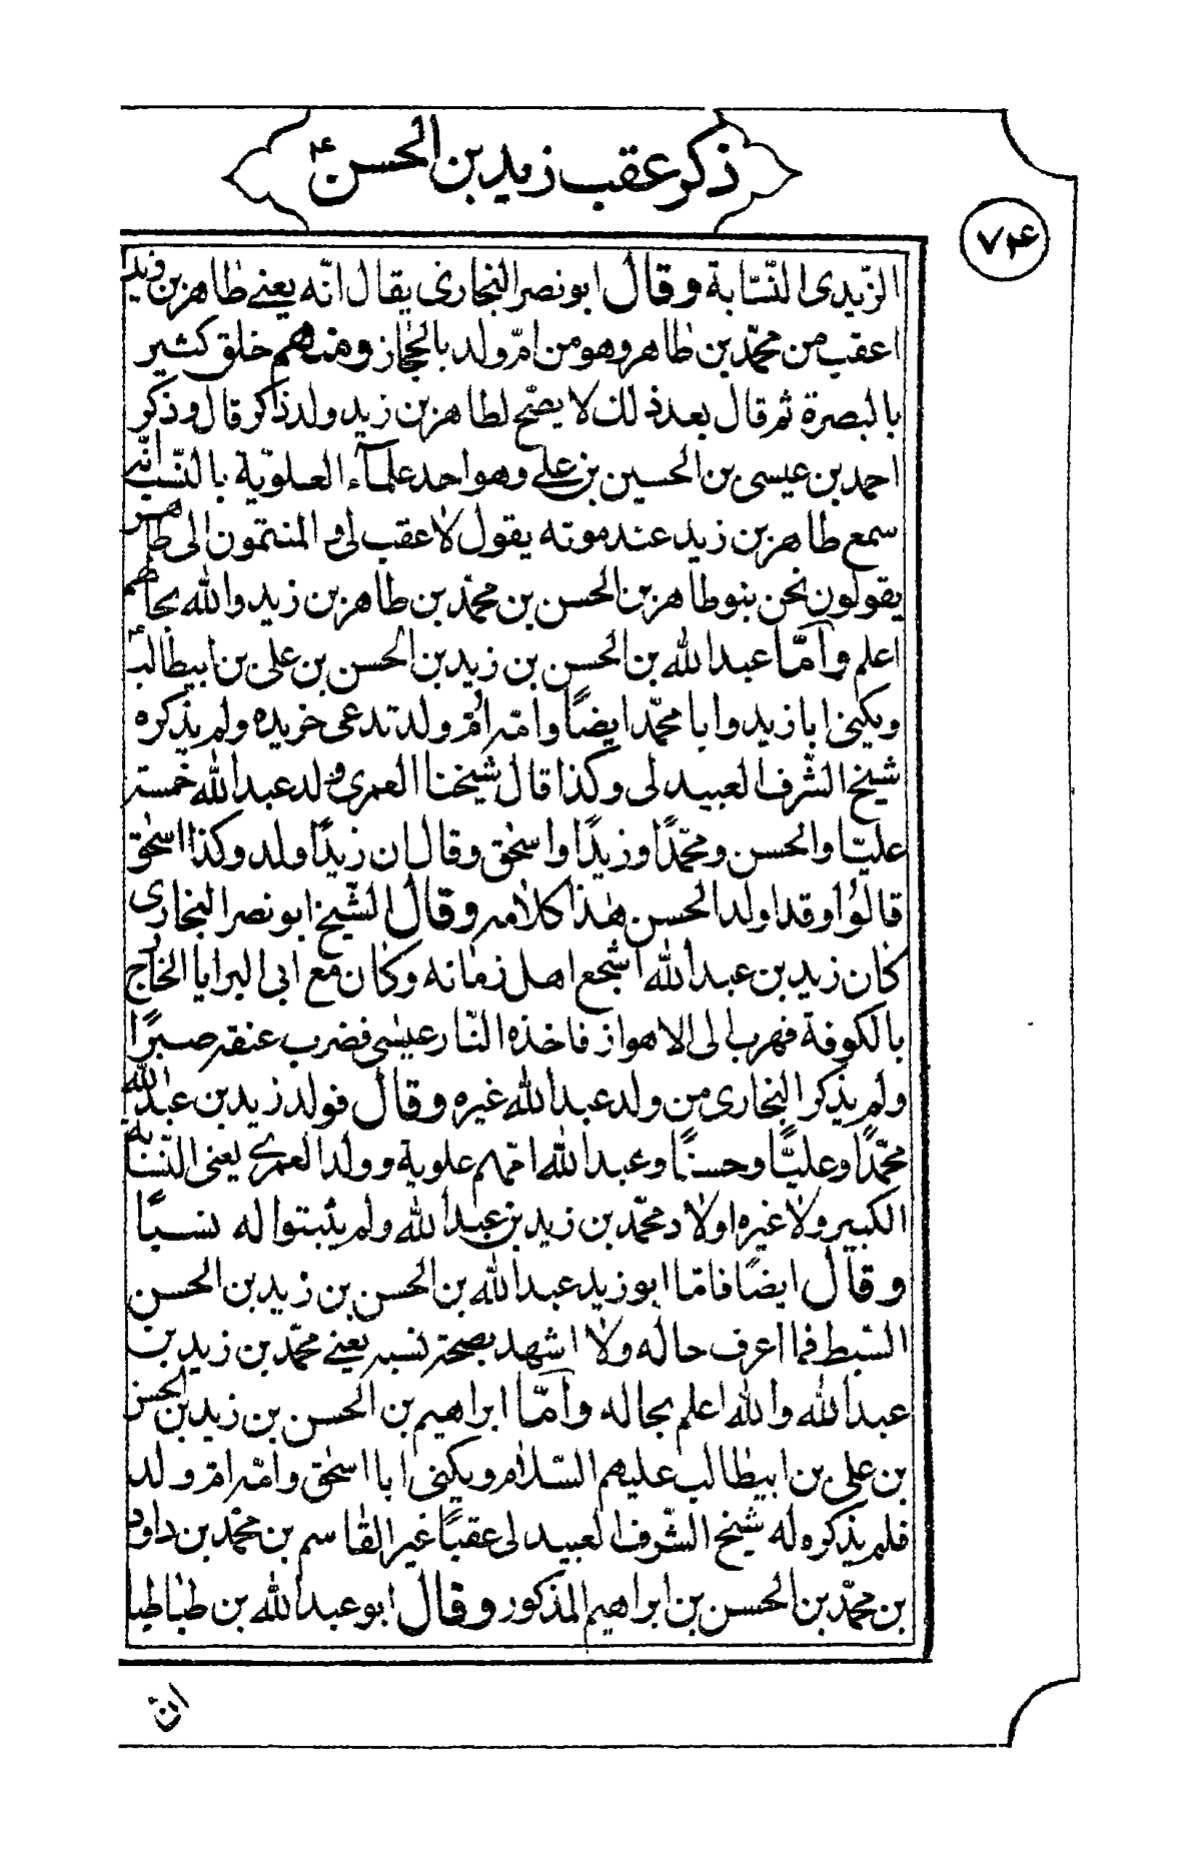 ذكر عقب زيد بن الحسن ع
٧٤
الزيدى النسّابة وقال ابو نصر النجارى يقال انّه يعنى طاهر بن زيد
اعقب من محمّد بن طاهر وهو من امّ ولد بالحجاز ومنهم خلق كثير
بالبصرة ثم قال بعد ذلك لا يصحّ لطاهر بن زيد ولد ذاكر قال وذكر
احمد بن عيسى بن الحسين بن على وهو احد علمآء العلويّة بالنّسب انّه
سمع طاهر بن زيد عند موته يقول لا عقب لى و المنتمون الى طاهر
يقولون نحن بنو طاهر بن الحسن بن محمّد بن طاهر بن زيد والله بحالهم
اعلم وآمّا عبد الله بن الحسن بن زيد بن الحسن بن على بن ابيطالب ع
ويكنى ابا زيد وابا محمّد ايضًا وامّه امّ ولد تدعى خريده ولم يذكره
شيخ الشّرف العبيدلى وكذا قال شيخنا العمرى ولد عبد الله خمسة
عليّا والحسن ومحمّدًا وزيدًا واسحٰق وقال ان زيدًا ولد وكذا اسحٰق
قالوُا وقد اولد الحسن هٰذا كلامه وقال الشّيخ ابو نصر النجارى
كان زيد بن عبد الله اشجع اهل زمانه وكان مع ابى البرايا الخارج
بالكوفة فهرب الى الاهواز فاخذه النّار عيسٰى فضرب عنقه صبرًا
ولم يذكر النجارى من ولد عبد الله غيره وقال فولد زيد بن عبد الله
محمّدًا وعليًّا وحسنًا وعبد الله امّهم علوية وولد العمرى يعنى النسّابة
الكبير ولا غيره اولاد محمّد بن زيد بن عبد الله ولم يثبتوا له نسبًا
وقال ايضًا فامّا ابو زيد عبد الله بن الحسن بن زيد بن الحسن
السّبط فما اعرف حاله ولا اشهد بصحة نسبه يعنى محمّد بن زيد بن
عبد الله والله اعلم بحاله وآمّا ابراهيم بن الحسن بن زيد بن الحسن
بن على بن ابيطالب عليهم السّلام ويكنى ابا اسحٰق وامّه امّ ولد
فلم يذكره له شيخ الشّرف العبيدلى عقبًا غير القاسم بن محمّد بن داود
بن محمّد بن الحسن بن ابراهيم المذكور وقال ابو عبد الله بن طباطبا
ان